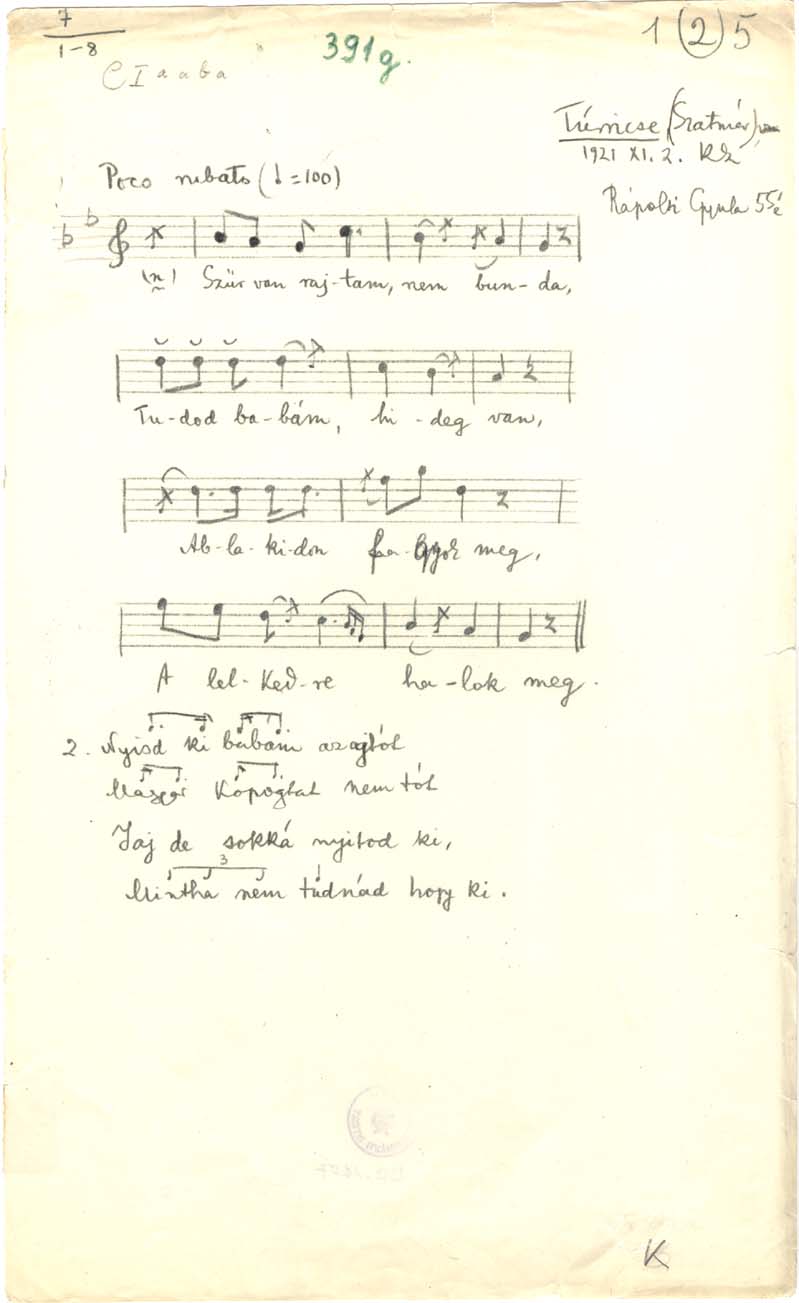 7
1-8
1 2 5
391g.
C I a a b a
Túrricse (Szatmár)
1921 XI. 2. KZ
Rápolti Gyula 55 é
Poco rubato (♩=100)
(n) Szűr van raj-tam, nem bun-da,
Tu-dod ba-bám, hi-deg van,
Ab-la-ki-don fa-gyok meg,
A lel-ked-re ha-lok meg.
2. Nyisd ki babám az ajtót
kopogtat nem tót
Jaj de sokká nyitod ki,
3
Mintha nem tudnád hogy ki.
K